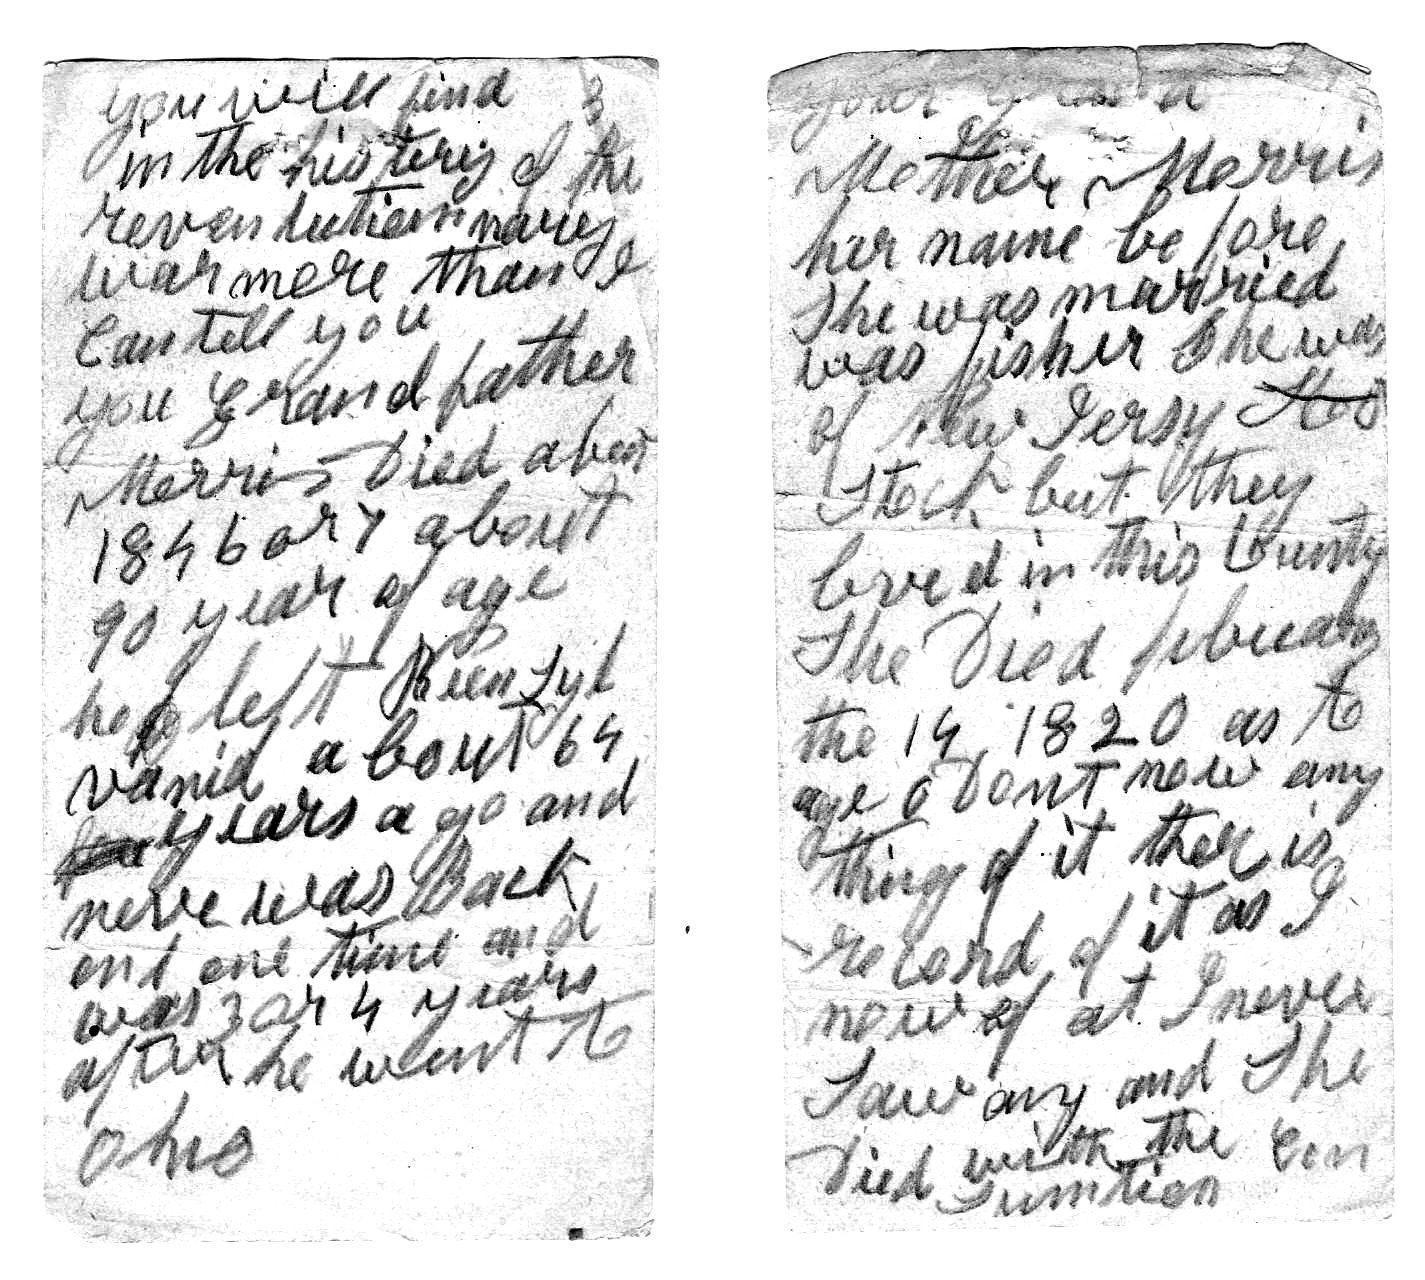 you will find 3
in the history of the
revenlutionnarey
war more than I
Can tell you
you Grand father
Morris Died about
1846 or 7 about
90 year of age
he left Piensyl
vania about 64
years a go and
neve was Back
onl one time and
was 3 or 4 years
after he went to
Ohio
your Grand
Mother Morris
her name be fore
She was married
was fisher She was
of New Jersy
Stock but they
lived in this County
She Died february
the 14 1820 as to
age I Dont now any
thing of it ther is
record of it as I
now of at I never
Saw any and She
Died with the Con
sumtion